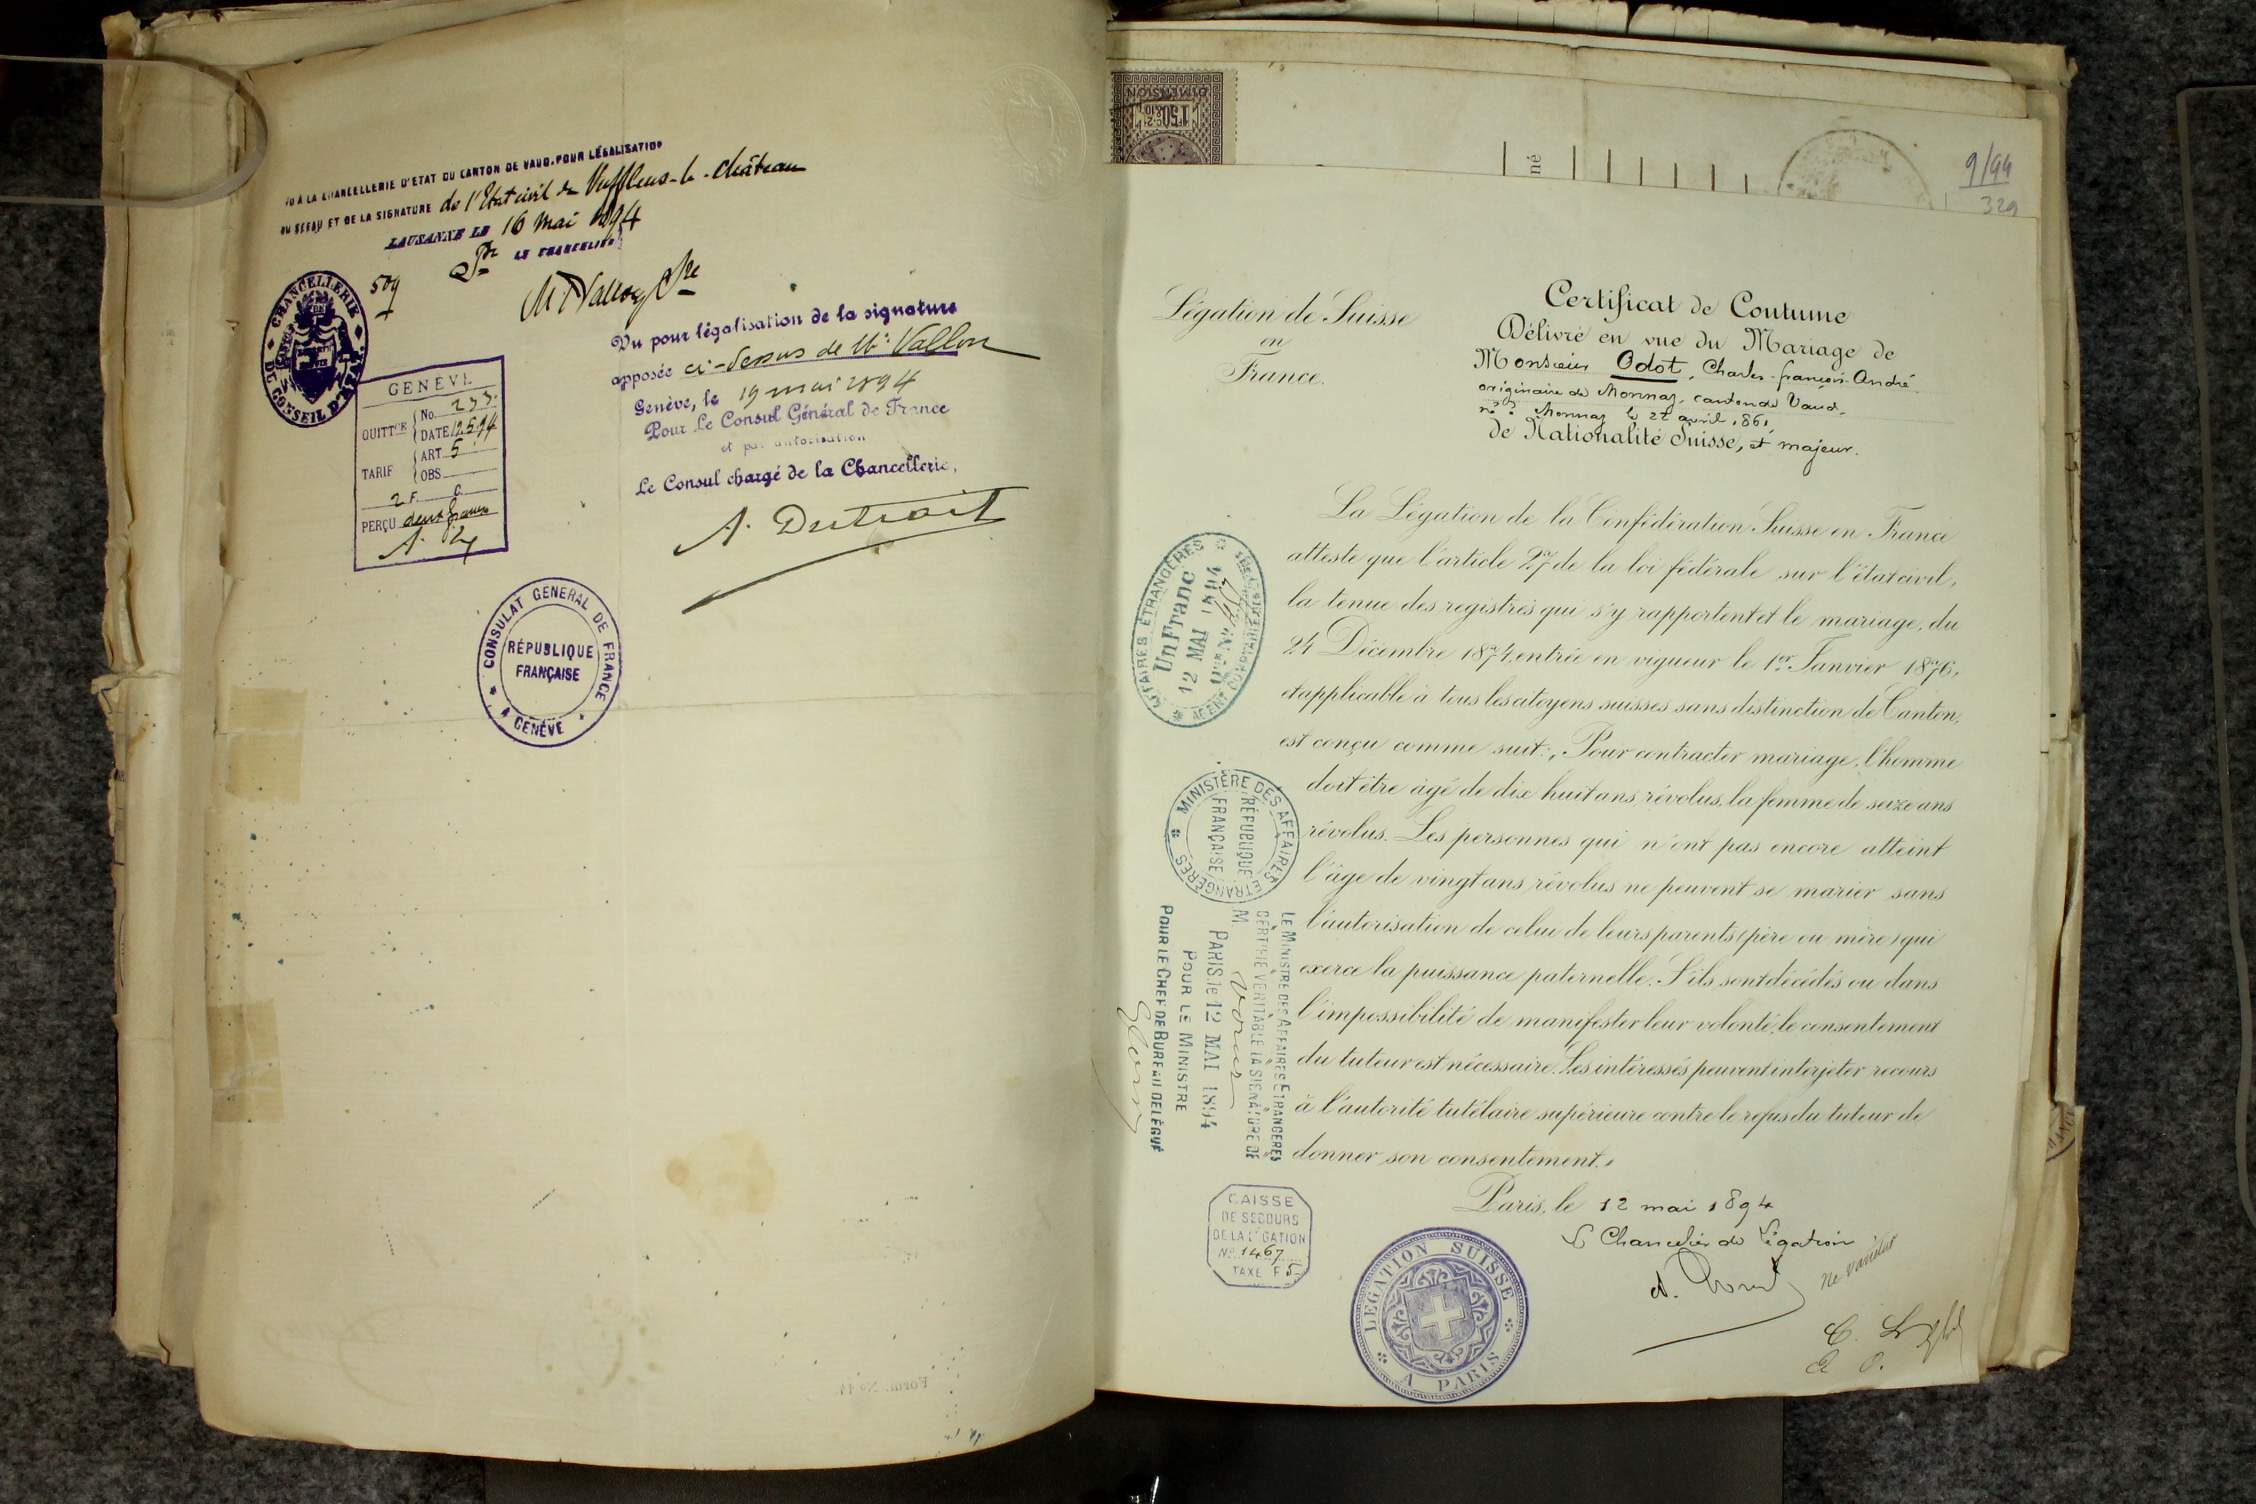 VU À LA CHANCELLERIE D'ETAT DU CANTON DE VAUD, POUR LÉGALISATION
DU SCEAU ET DE LA SIGNATURE de l'Etat civil de Vufflens-le-Château
LAUSANNE LE 16 mai 1894
Pr LE CHANCELIER
509
CHANCELLERIE
DU CONSEIL D'ÉTAT
GENÈVE
QUITTCE No. 233.
DATE 19.5.94
TARIF ART. 5
OBS
2 F. C.
PERÇU deux francs
Vu pour légalisation de la signature
apposée ci-dessus de Mr. Vallon
Genève, le 19 mai 1894
Pour Le Consul Général de France
et par autorisation
Le Consul chargé de la Chancellerie,
A. Dutrait
CONSULAT GENERAL DE FRANCE
RÉPUBLIQUE
FRANÇAISE
A GENÈVE
Form. No 14
DIMENSION
né
9/94
329
Légation de Suisse
en
France.
Certificat de Coutume
Délivré en vue du Mariage de
Monsieur Odot, Charles-françois-André
originaire de Monnaz, canton de Vaud,
né à Monnaz le 22 avril 1861
de Nationalité Suisse, et majeur.
La Légation de la Confédération Suisse en France
atteste que l'article 27 de la loi fédérale sur l'état civil,
la tenue des registres qui s'y rapportent et le mariage, du
24 Décembre 1874, entrée en vigueur le 1er Janvier 1876,
et applicable à tous les citoyens suisses sans distinction de Canton,
est conçu comme suit: „Pour contracter mariage, l'homme
doit être âgé de dix huit ans révolus, la femme de seize ans
révolus. Les personnes qui n'ont pas encore atteint
l'âge de vingt ans révolus ne peuvent se marier sans
l'autorisation de celui de leurs parents (père ou mère) qui
exerce la puissance paternelle. S'ils sont décédés ou dans
l'impossibilité de manifester leur volonté, le consentement
du tuteur est nécessaire. Les intéressés peuvent interjeter recours
à l'autorité tutélaire supérieure contre le refus du tuteur de
donner son consentement."
Paris, le 12 mai 1894
Le Chancelier de Légation
Ne varietur
AFFAIRES ÉTRANGÈRES
Un Franc
12 MAI 1894
AGENT COMPTABLE
MINISTÈRE DES AFFAIRES ETRANGÈRES
RÉPUBLIQUE
FRANÇAISE
LE MINISTRE DES AFFAIRES ETRANGÈRES
CERTIFIE VÉRITABLE LA SIGNATURE DE
M.
PARIS, le 12 MAI 1894
POUR LE MINISTRE
POUR LE CHEF DE BUREAU DÉLÉGUÉ
CAISSE
DE SECOURS
DE LA LÉGATION
No. 1467
TAXE F 5
LÉGATION SUISSE
A PARIS